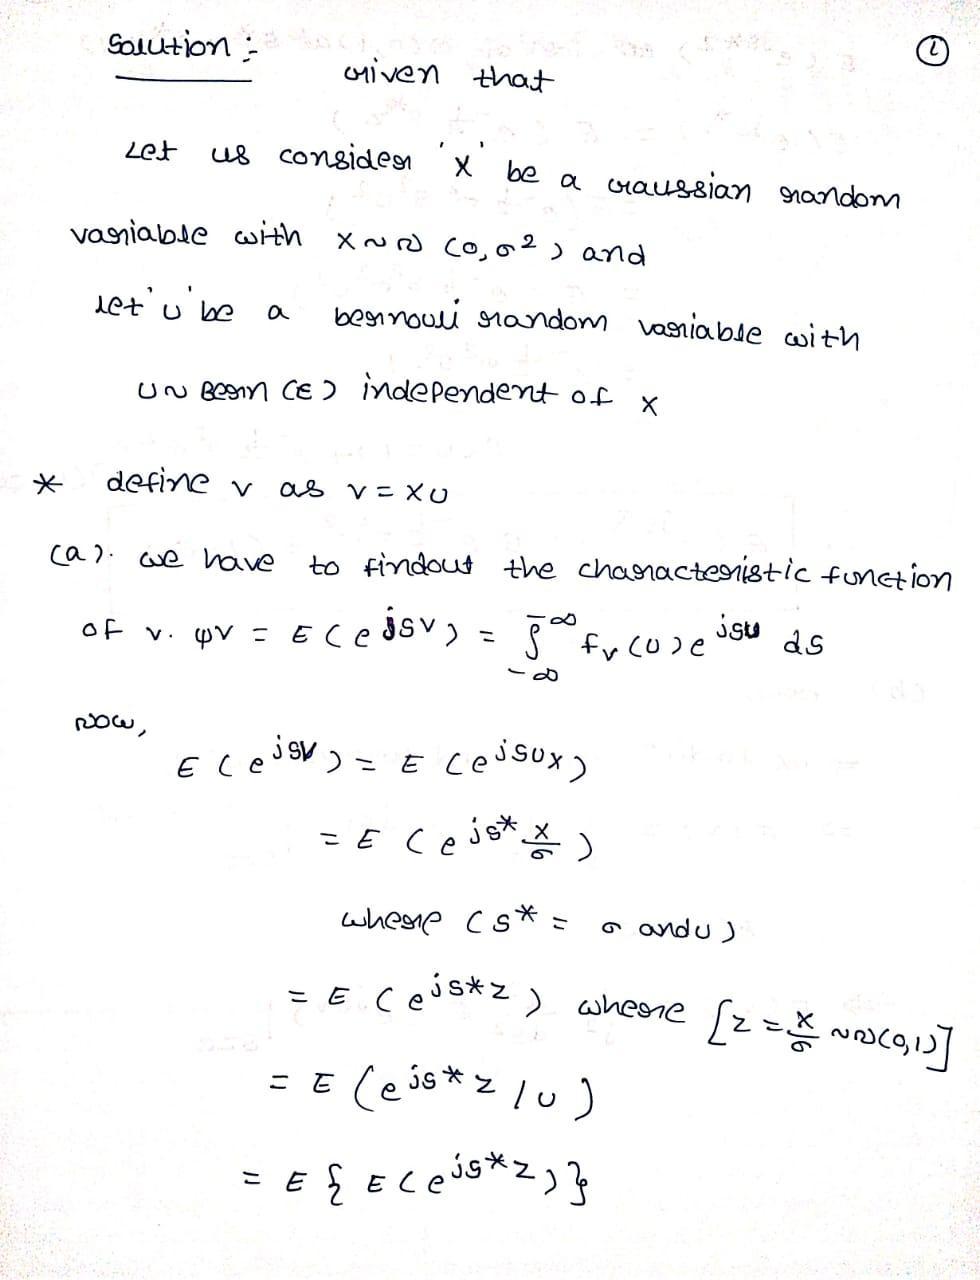 Solution :-
①
Given that
Let us consider 'x' be a Gaussian random
variable with x ~ N (0, σ²) and
let 'U' be a bernouli random variable with
U ~ Bern (ε) independent of x
* define v as v = xU
(a). we have to findout the characteristic function
of v. φv = E(e^{jsv}) = ∫_{-∞}^{-∞} f_v (U) e^{jsu} ds
Now,
E(e^{jsv}) = E(e^{jsUx})
= E(e^{js* x/σ})
where (s* = σ andU)
= E(e^{js*z}) where [z = x/σ ~ N(0,1)]
= E(e^{js*z} / U)
= E{E(e^{js*z})}